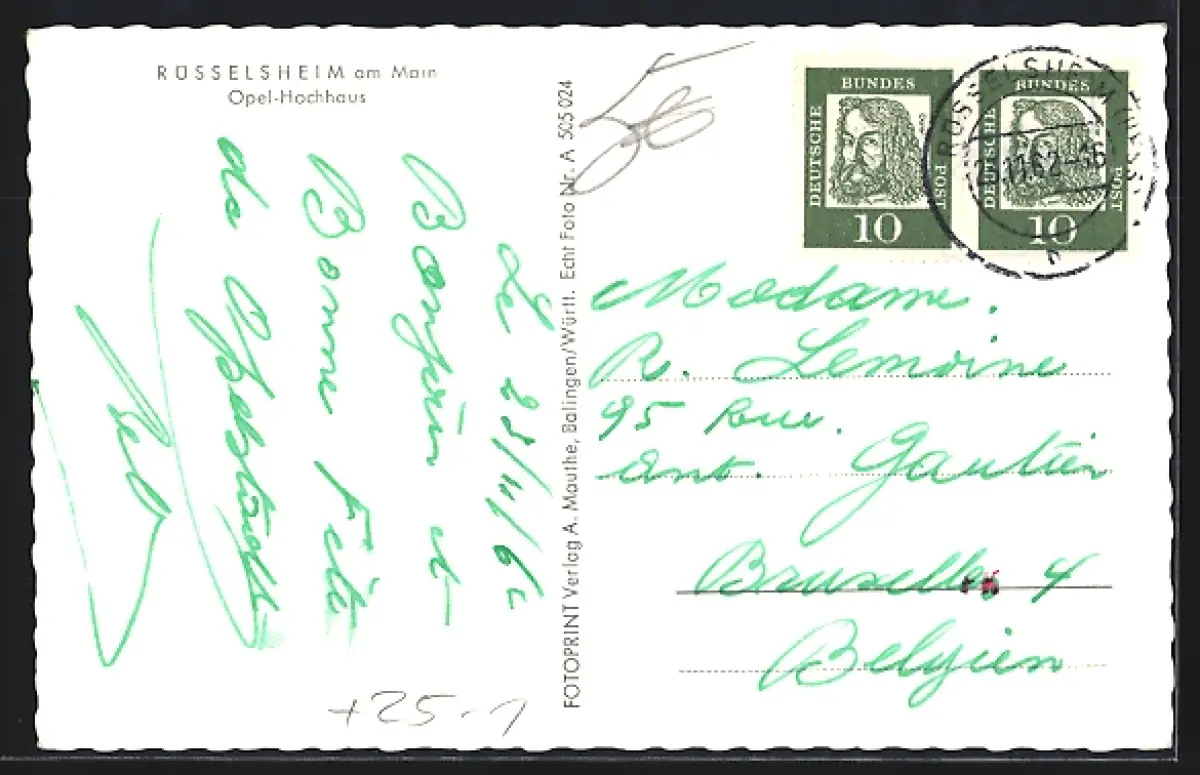 RÜSSELSHEIM am Main
Opel-Hochhaus
Le 25/11/62
Bonjour et
Bonne Fête
de
FOTOPRINT Verlag A. Mauthe, Balingen/Württ. Echt Foto Nr. A 505 024
DEUTSCHE BUNDES POST
10
DEUTSCHE BUNDES POST
10
RÜSSELSHEIM (HESS)
.11.62-16
Madame.
R. Lemoine
95 Rue.
Ant. Gautier
Bruxelles 4
Belgien
+25-1